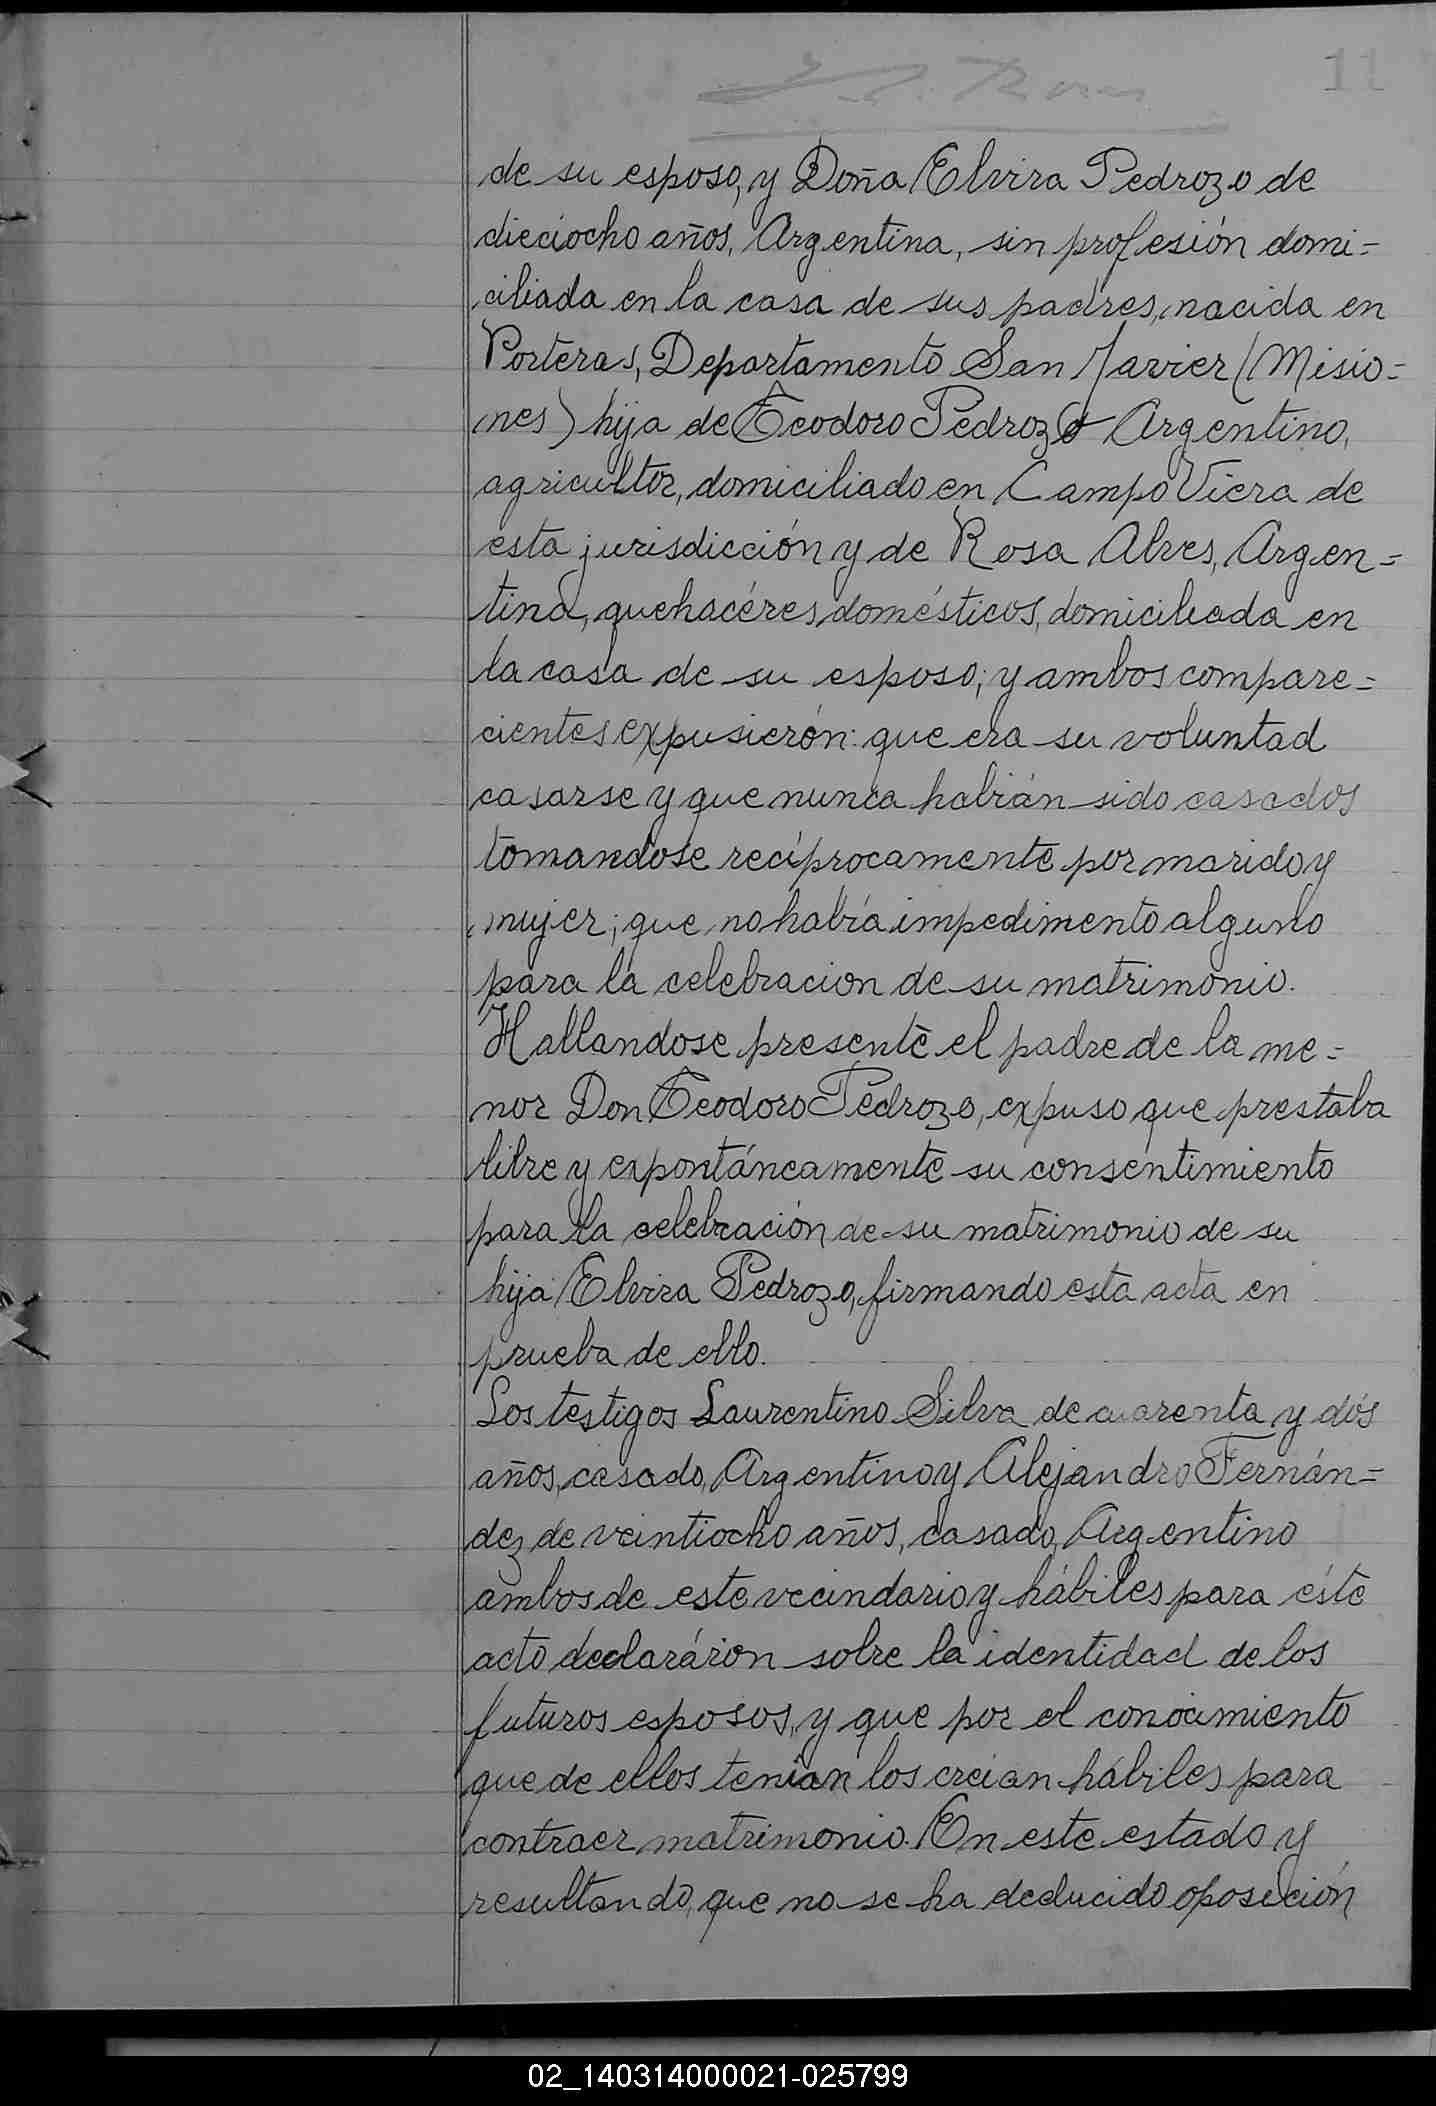 11
de su esposo, y Doña Elvira Pedrozo de
dieciocho años, Argentina, sin profesión domi=
ciliada en la casa de sus padres, nacida en
Porteras, Departamento San Javier (Misio=
nes) hija de Teodoro Pedrozo Argentino,
agricultor, domiciliado en Campo Viera de
esta jurisdicción y de Rosa Alves, Argen=
tina, quehacéres domésticos, domiciliada en
la casa de su esposo; y ambos compare=
cientes expusierón: que era su voluntad
casarse y que nunca habián sido casados
tomandose recíprocamente por marido y
mujer; que no había impedimento alguno
para la celebracion de su matrimonio.
Hallandose presente el padre de la me=
nor Don Teodoro Pedrozo, expuso que prestaba
libre y expontáneamente su consentimiento
para la celebración de su matrimonio de su
hija Elvira Pedrozo, firmando esta acta en
prueba de ello.
Los testigos Laurentino Silva de cuarenta y dós
años, casado, Argentino y Alejandro Fernán=
dez de veintiocho años, casado, Argentino
ambos de este vecindario y hábiles para éste
acto declaráron sobre la identidad de los
futuros esposos, y que por el conocimiento
que de ellos tenian los creian hábiles para
contraer matrimonio. En este estado y
resultando, que no se ha deducido oposición
02_140314000021-025799